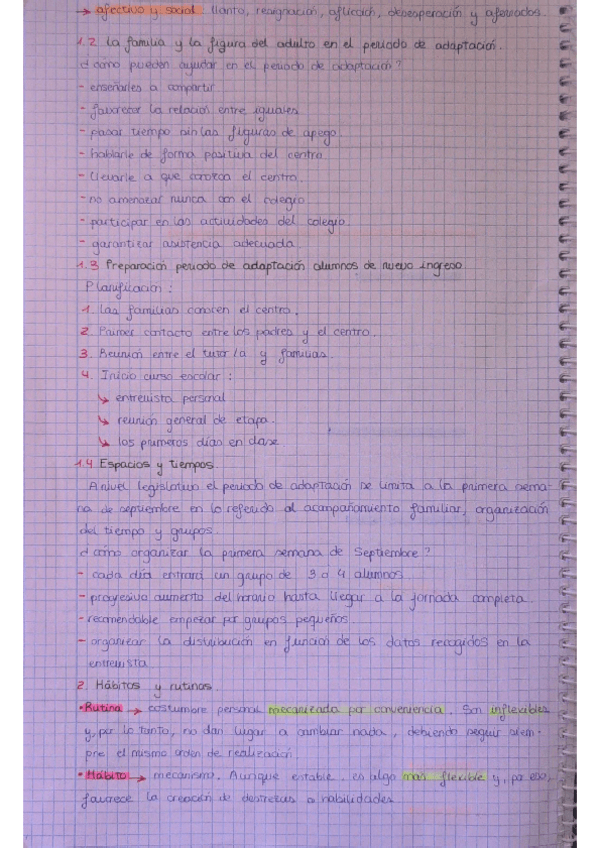 → afectivo y social: llanto, resignación, aflicción, desesperación y aferrados.
1.2 La familia y la figura del adulto en el periodo de adaptación.
¿Cómo pueden ayudar en el periodo de adaptación?
- enseñarles a compartir
- favorecer la relación entre iguales
- pasar tiempo sin las figuras de apego
- hablarle de forma positiva del centro
- llevarle a que conozca el centro.
- no amenazar nunca con el colegio
- participar en las actividades del colegio
- garantizar asistencia adecuada
1.3 Preparación periodo de adaptación alumnos de nuevo ingreso
Planificación:
1. Las familias conocen el centro.
2. Primer contacto entre los padres y el centro.
3. Reunión entre el tutor/a y familias.
4. Inicio curso escolar:
↳ entrevista personal
↳ reunión general de etapa.
↳ los primeros días en clase.
1.4 Espacios y tiempos
A nivel legislativo el periodo de adaptación se limita a la primera sema-
na de septiembre en lo referido al acompañamiento familiar, organización
del tiempo y grupos.
¿Cómo organizar la primera semana de Septiembre?
- cada día entrará un grupo de 3 o 4 alumnos
- progresivo aumento del horario hasta llegar a la jornada completa.
- recomendable empezar por grupos pequeños
- organizar la distribución en función de los datos recogidos en la
entrevista
2. Hábitos y rutinas
• Rutina → costumbre personal mecanizada por conveniencia. Son inflexibles
y, por lo tanto, no dan lugar a cambiar nada, debiendo seguir siem-
pre el mismo orden de realización
• Hábito → mecanismo. Aunque estable, es algo más flexible y, por eso,
favorece la creación de destrezas o habilidades.